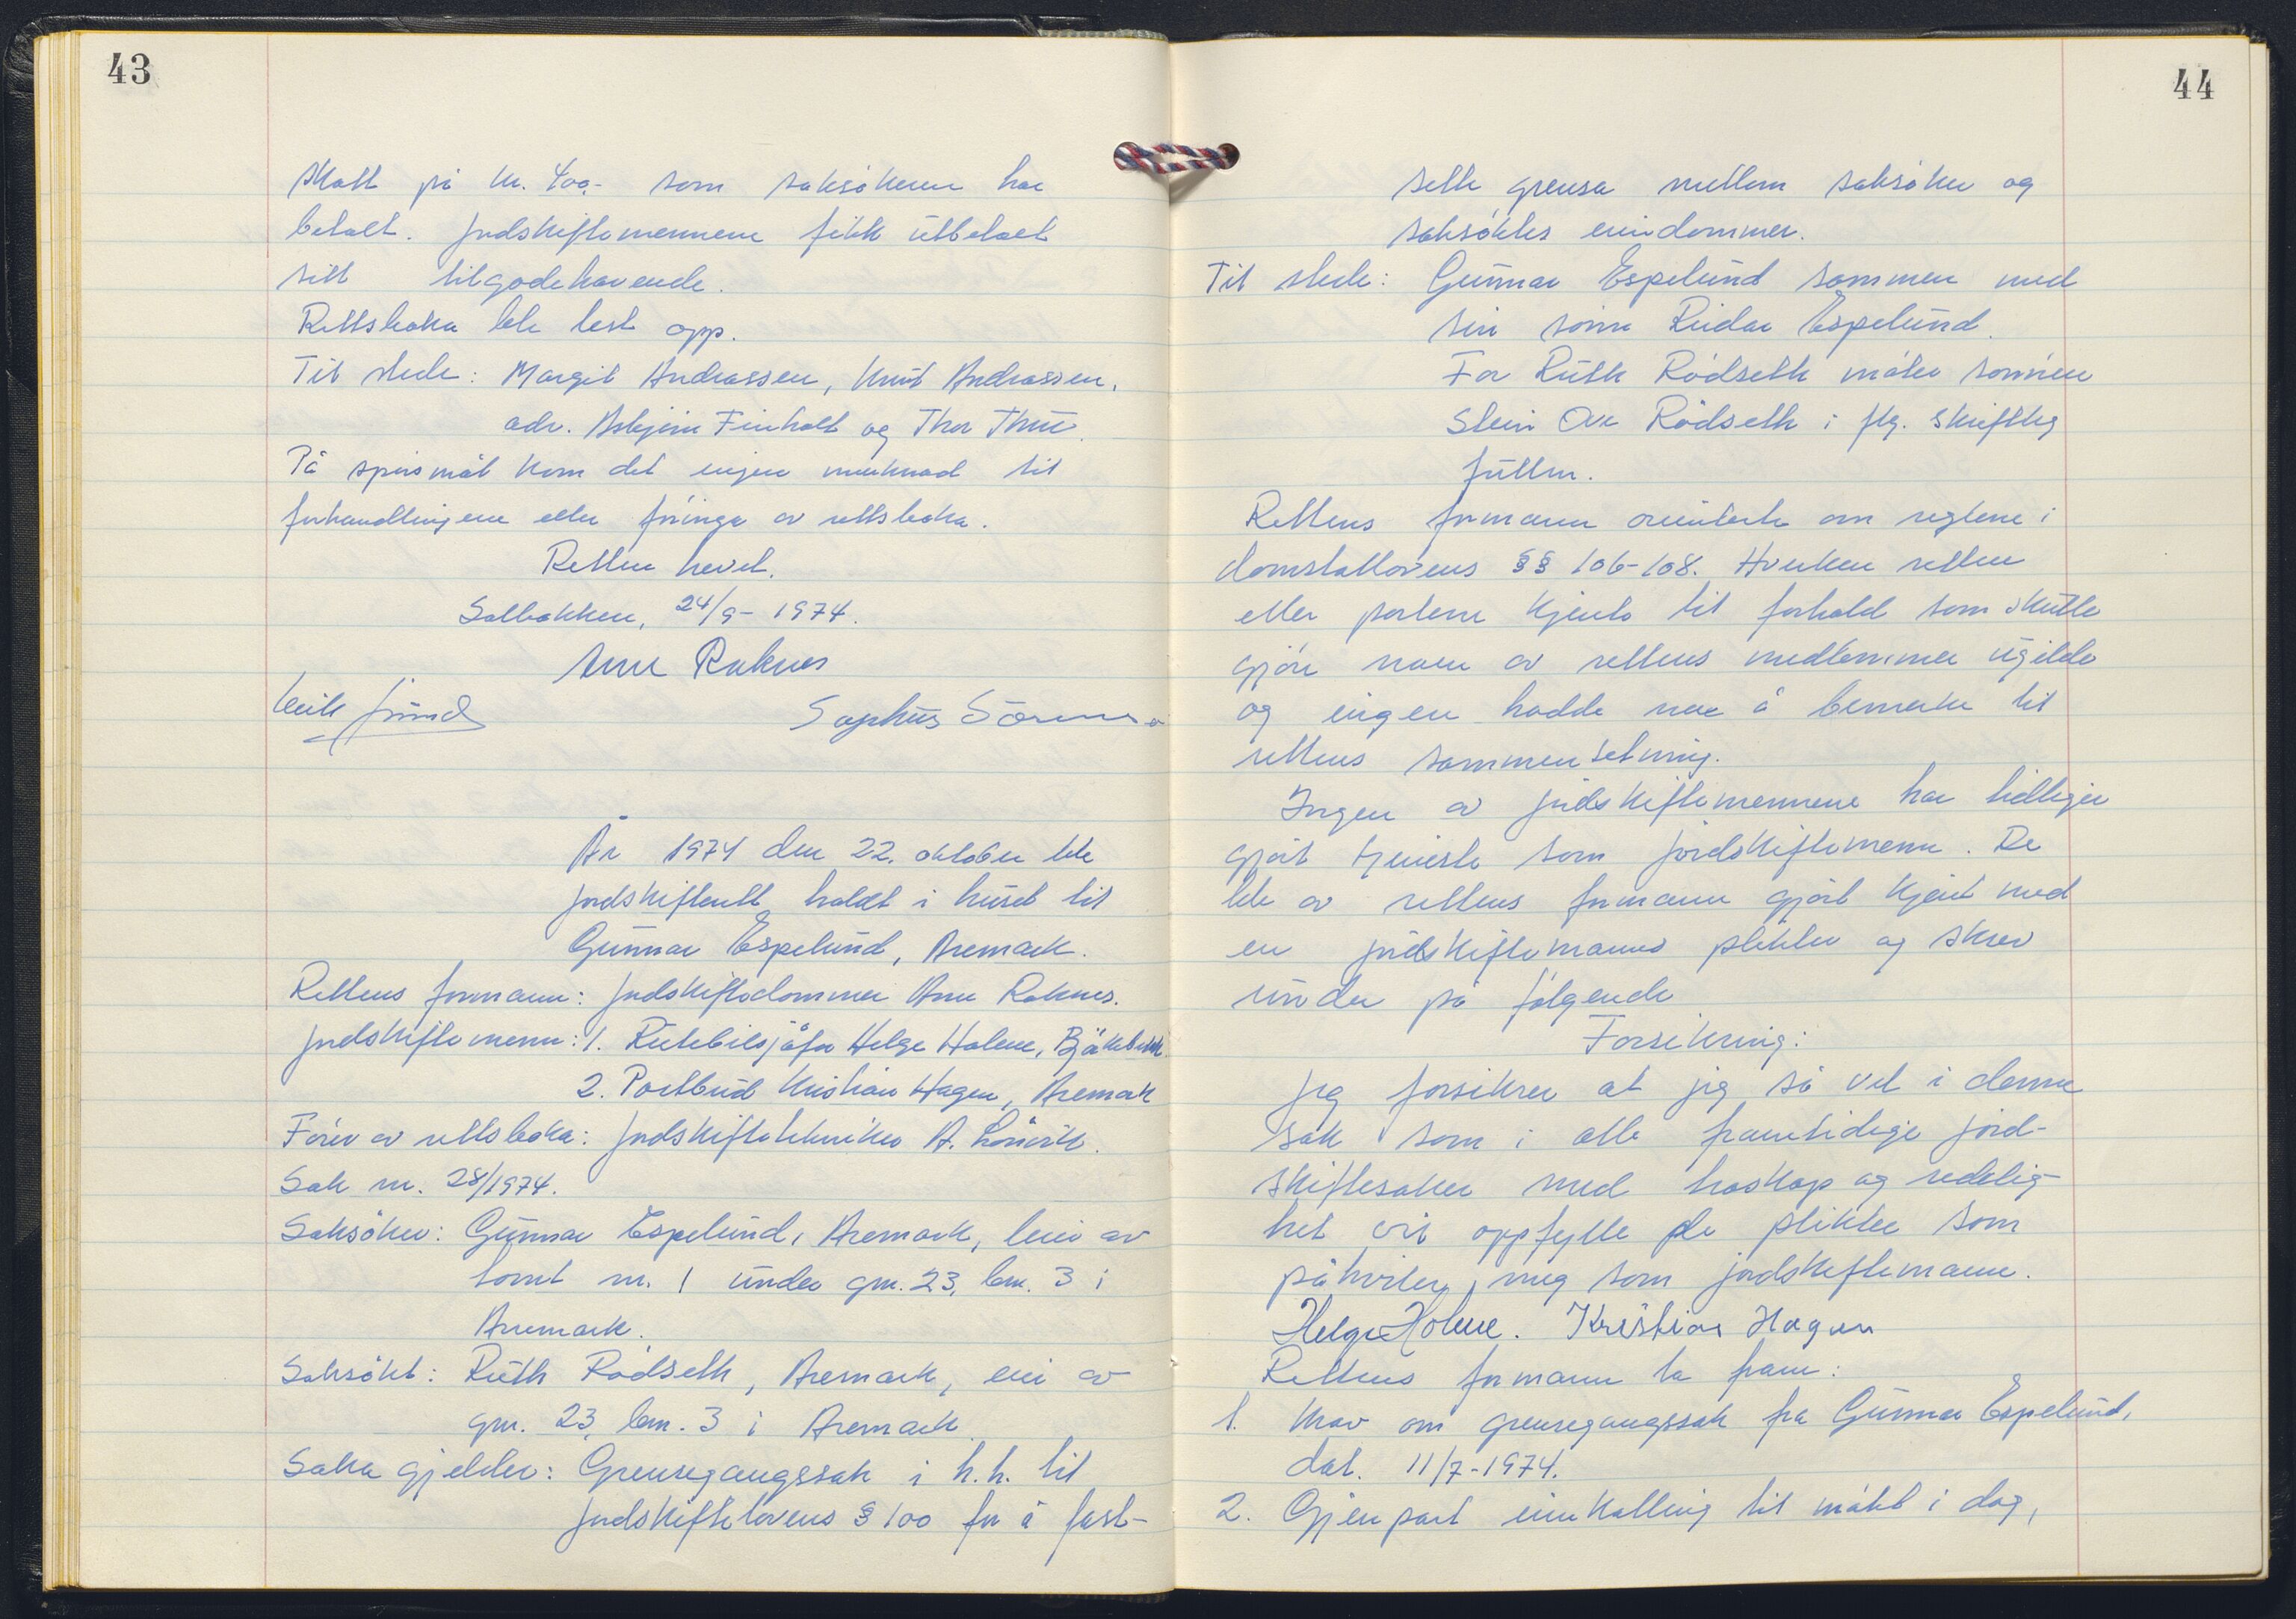 43
skatt på kr. 400,- som saksøkeren har
betalt. Jordskiftemennene fikk utbetalt
sitt tilgodehavende.
Rettsboka ble lest opp.
Til stede: Margit Andreassen, Knut Andreassen,
adv. Asbjørn Finholt og Thor Thue.
På spørsmål kom det ingen merknad til
forhandlingene eller føringa av rettsboka.
Retten hevet.
Solbakken, 24/9- 1974.
Arne Raknes
Sophus Sørensen
År 1974 den 22. oktober ble
jordskifterett holdt i huset til
Gunnar Espelund, Aremark.
Rettens formann: Jordskiftedommer Arne Raknes.
Jordskiftemenn: 1. Rutebilsjåfør Helge Holene, Bjørkebekk
2. Postbud Kristian Hagen, Aremark
Fører av rettsboka: Jordskiftetekniker A. Lønvik.
Sak nr. 28/1974.
Saksøker: Gunnar Espelund, Aremark, leier av
tomt nr. 1 under gnr. 23, bnr. 3 i
Aremark.
Saksøkt: Ruth Rødseth, Aremark, eier av
gnr. 23, bnr. 3 i Aremark.
Saka gjelder: Grensegangssak i h.h. til
jordskiftelovens § 100 for å fast-
44
sette grensa mellom saksøker og
saksøktes eiendommer.
Til stede: Gunnar Espelund sammen med
sin sønn Reidar Espelund.
For Ruth Rødseth møter sønnen
Stein Ove Rødseth i flg. skriftlig
fullm.
Rettens formann orienterte om reglene i
domstollovens §§ 106-108. Hverken retten
eller partene kjente til forhold som skulle
gjøre noen av rettens medlemmer ugilde
og ingen hadde noe å bemerke til
rettens sammensetning.
Ingen av jordskiftemennene har tidligere
gjort tjeneste som jordskiftemenn. De
ble av rettens formann gjort kjent med
en jordskiftemanns plikter og skrev
under på følgende
Forsikring:
Jeg forsikrer at jeg så vel i denne
sak som i alle framtidige jord-
skiftesaker med troskap og redelig-
het vil oppfylle de plikter som
påhviler meg som jordskiftemann.
Helge Holene. Kristian Hagen
Rettens formann la fram:
1. Krav om grensegangssak fra Gunnar Espelund,
dat. 11/7-1974.
2. Gjenpart innkalling til møtet i dag,